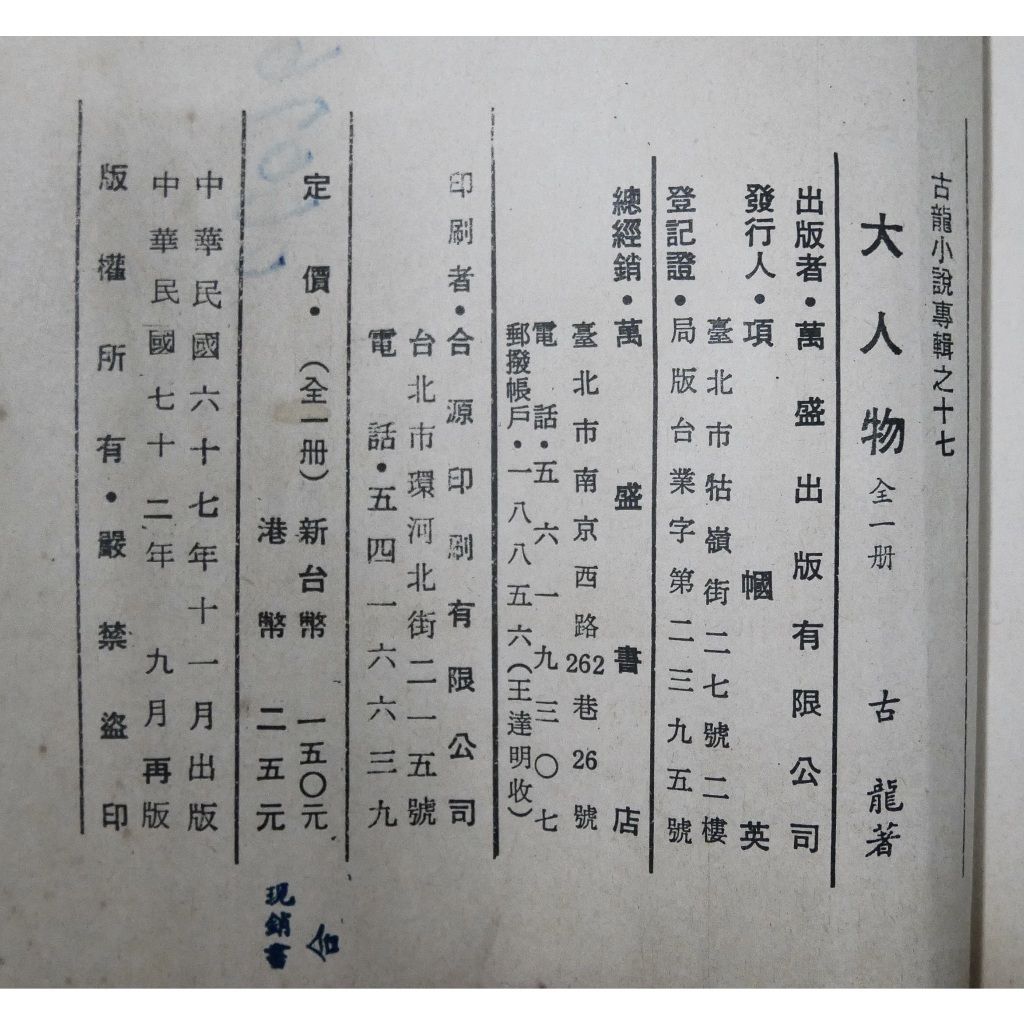 古龍小說專輯之十七
大人物 全一册 古龍著
出版者・萬盛出版有限公司
發行人・項幗英
臺北市牯嶺街二七號二樓
登記證・局版台業字第二三九五號
總經銷・萬盛書店
臺北市南京西路262巷26號
電話・五六一九三〇七
郵撥帳戶・一八八五六(王達明收)
印刷者・合源印刷有限公司
台北市環河北街二一五號
電話・五四一六六三九
定價・(全一册)新台幣一五〇元
港幣二五元
中華民國六十七年十一月出版
中華民國七十二年九月再版
版權所有・嚴禁盜印
現銷書